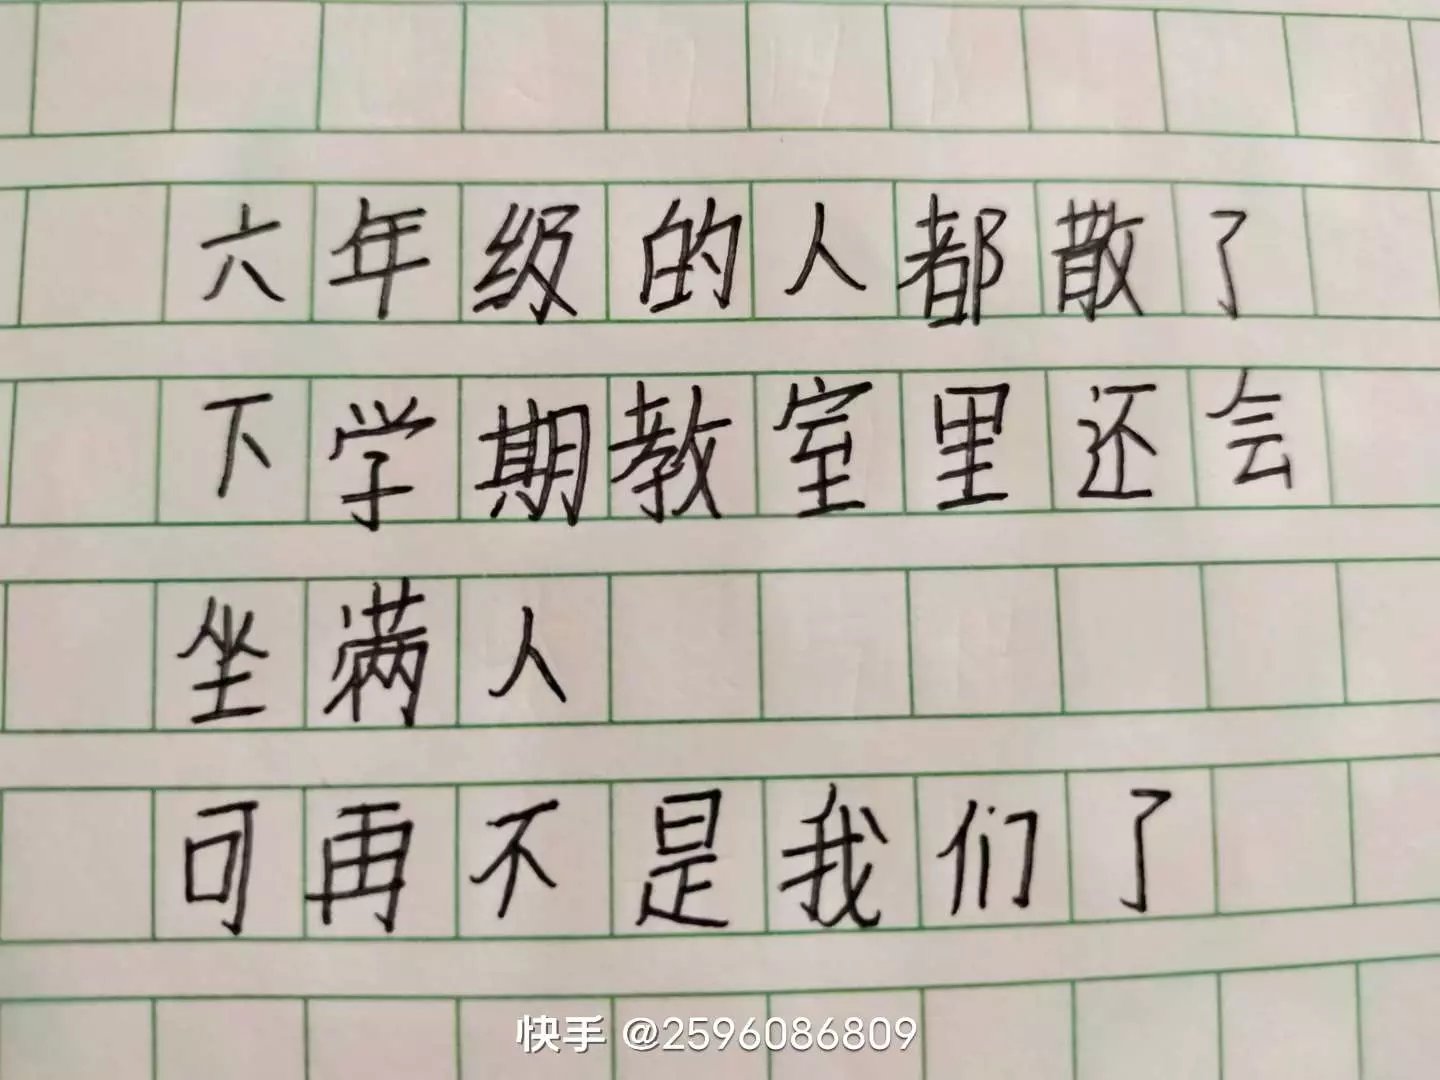 六年级的人都散了
下学期教室里还会
坐满人
可再不是我们了
快手 @2596086809